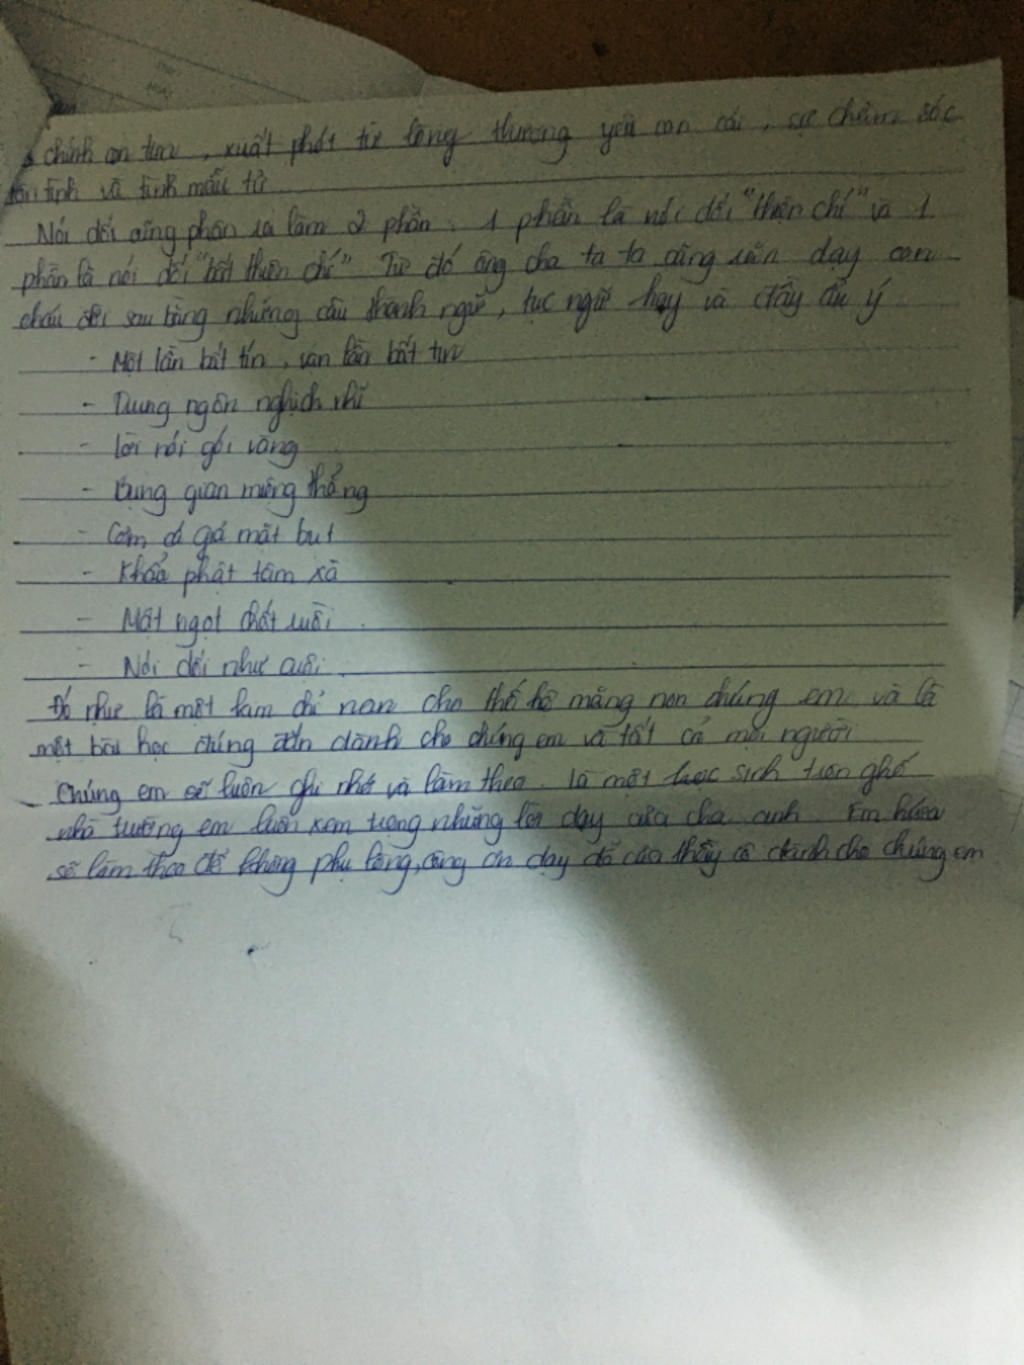 chính con tim, xuất phát từ lòng thương yêu con cái, sự chăm sóc
tận tình và tình mẫu tử
Nói dối cũng phân ra làm 2 phần. 1 phần là nói dối "thiện chí" và 1
phần là nói dối "bất thiện chí" Từ đó ông cha ta ta cũng răn dạy con
cháu đời sau bằng những câu thành ngữ, tục ngữ hay và đầy đủ ý
- Một lần bất tín, vạn lần bất tin
- Dung ngôn nghịch nhĩ
- lời nói gói vàng
- Bụng gian miệng thẳng
- Cơm cá giả mặt bụt
- Khẩu phật tâm xà
- Mật ngọt chết ruồi.
- Nói dối như cuội.
Đó như là một kam chỉ nan cho thế hệ măng non chúng em và là
một bài học đúng đắn dành cho chúng em và tất cả mọi người
Chúng em sẽ luôn ghi nhớ và làm theo. là một học sinh trên ghế
nhà trường em luôn xem trọng những lời dạy của cha anh. Em hứa
sẽ làm theo để không phụ lòng, công ơn dạy dỗ của thầy cô dành cho chúng em